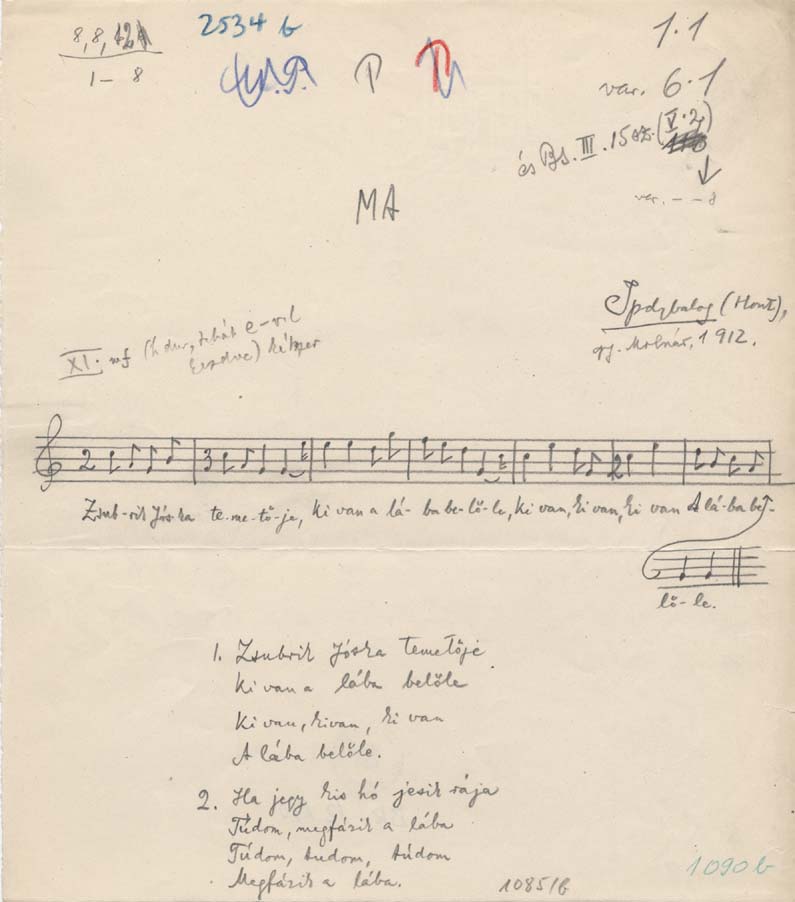 2534 b
1 - 8
P
1.1
var. 6.1
és Bs. III. 15 sz. (V.2)
var. - - 8
MA
Ipolybalog (Hont),
gy. Molnár, 1912.
XI.
kétszer
2 3 2
Zsub-rik Jós-ka te-me-tő-je, Ki van a lá-ba be-lő-le, ki van, ki van, ki van A lá-ba be-
lő-le.
1. Zsubrik Jóska temetője
Ki van a lába belőle
Ki van, kivan, ki van
A lába belőle.
2. Ha jegy kis hó jesik rája
Túdom, megfázik a lába
Túdom, tudom, túdom
Megfázik a lába.
1085/b
1090 b